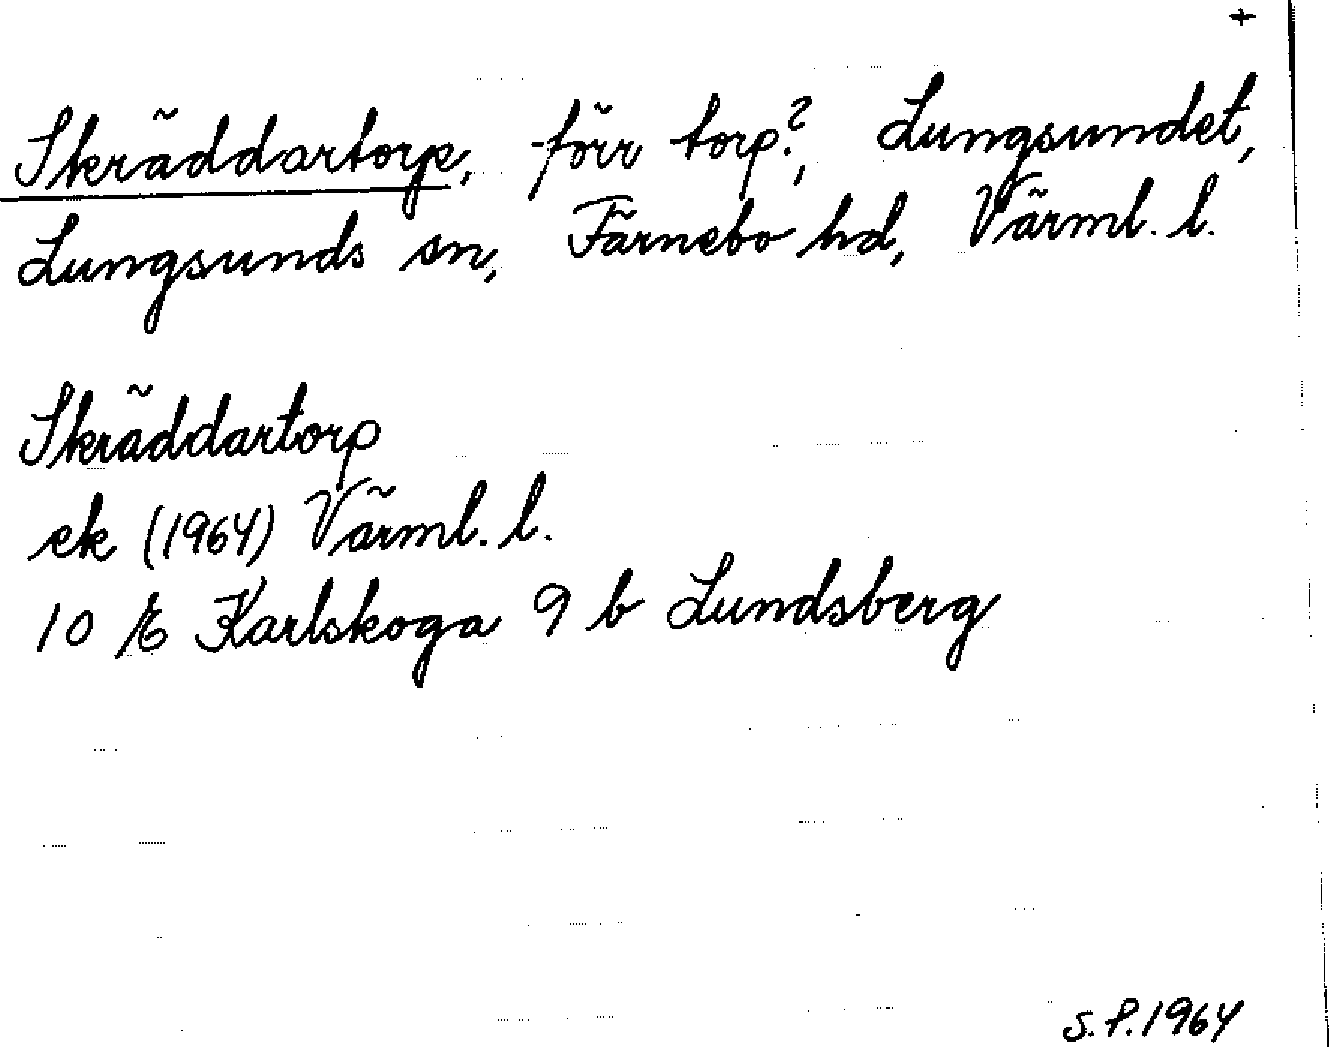 +
Skräddartorp, förr torp?, Lungsundet,
Lungsunds sn, Färnebo hd, Värml. l.
Skräddartorp
ek (1964) Värml. l.
10 E Karlskoga 9 b Lundsberg
S.P. 1964